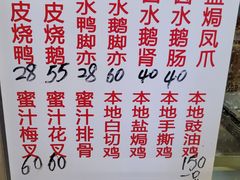 皮烧鸭 28
皮烧鹅 55
水鸭脚亦 28
水鹅脚亦 60
水鹅肾 40
水鹅肠 40
盐焗凤爪
蜜汁梅叉 60
蜜汁花叉 60
蜜汁排骨
本地白切鸡
本地盐焗鸡
本地手撕鸡
本地豉油鸡 150